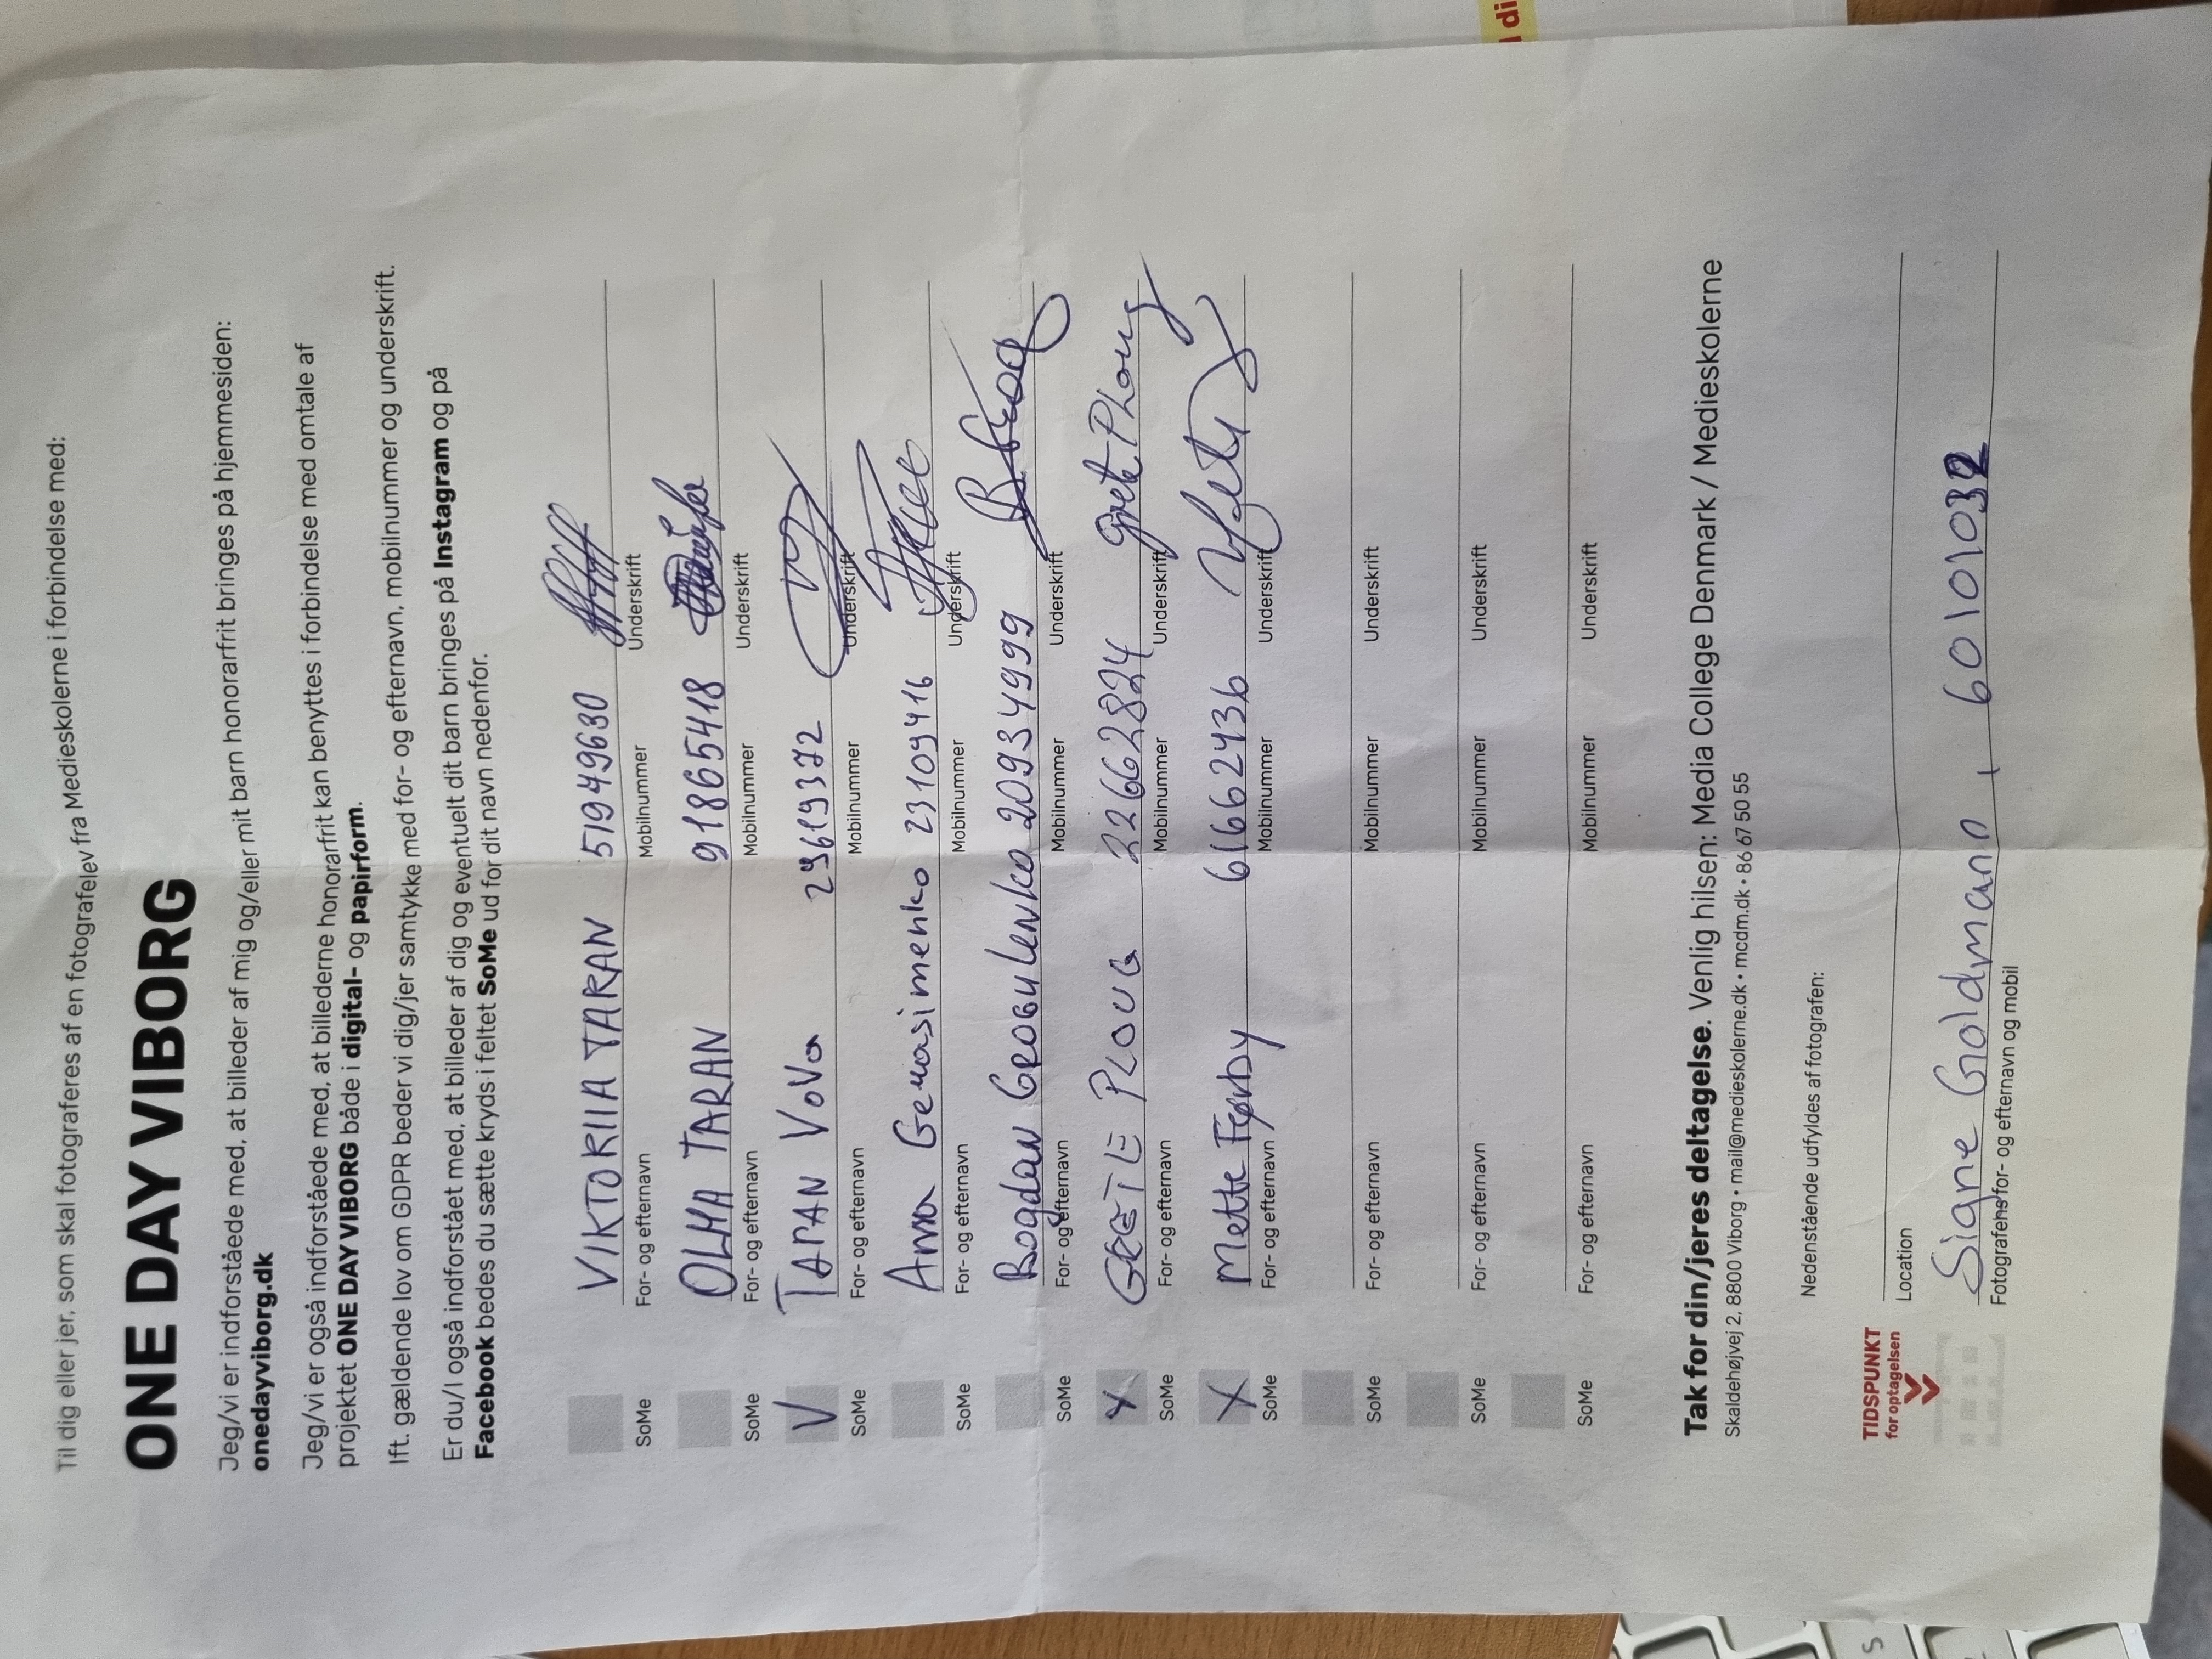 Til dig eller jer, som skal fotograferes af en fotografelev fra Medieskolerne i forbindelse med:
ONE DAY VIBORG
Jeg/vi er indforståede med, at billeder af mig og/eller mit barn honorarfrit bringes på hjemmesiden:
onedayviborg.dk
Jeg/vi er også indforståede med, at billederne honorarfrit kan benyttes i forbindelse med omtale af
projektet ONE DAY VIBORG både i digital- og papirform.
Ift. gældende lov om GDPR beder vi dig/jer samtykke med for- og efternavn, mobilnummer og underskrift.
Er du/I også indforstået med, at billeder af dig og eventuelt dit barn bringes på Instagram og på
Facebook bedes du sætte kryds i feltet SoMe ud for dit navn nedenfor.
VIKTORIIA TARAN 51949630
SoMe For- og efternavn Mobilnummer Underskrift
OLHA TARAN 91865418
SoMe For- og efternavn Mobilnummer Underskrift
V TARAN VoVa 29619372
SoMe For- og efternavn Mobilnummer Underskrift
Anna Gerasimenko 23109416
SoMe For- og efternavn Mobilnummer Underskrift
Bogdan 20934999
SoMe For- og efternavn Mobilnummer Underskrift
X GRETE PLOUG 22662824 Grete PLoug
SoMe For- og efternavn Mobilnummer Underskrift
X Mette Færby 61662436
SoMe For- og efternavn Mobilnummer Underskrift
SoMe For- og efternavn Mobilnummer Underskrift
SoMe For- og efternavn Mobilnummer Underskrift
SoMe For- og efternavn Mobilnummer Underskrift
Tak for din/jeres deltagelse. Venlig hilsen: Media College Denmark / Medieskolerne
Skaldehøjvej 2, 8800 Viborg • mail@medieskolerne.dk • mcdm.dk • 86 67 50 55
Nedenstående udfyldes af fotografen:
TIDSPUNKT
for optagelsen
Location
Signe Goldmann, 60101032
Fotografens for- og efternavn og mobil